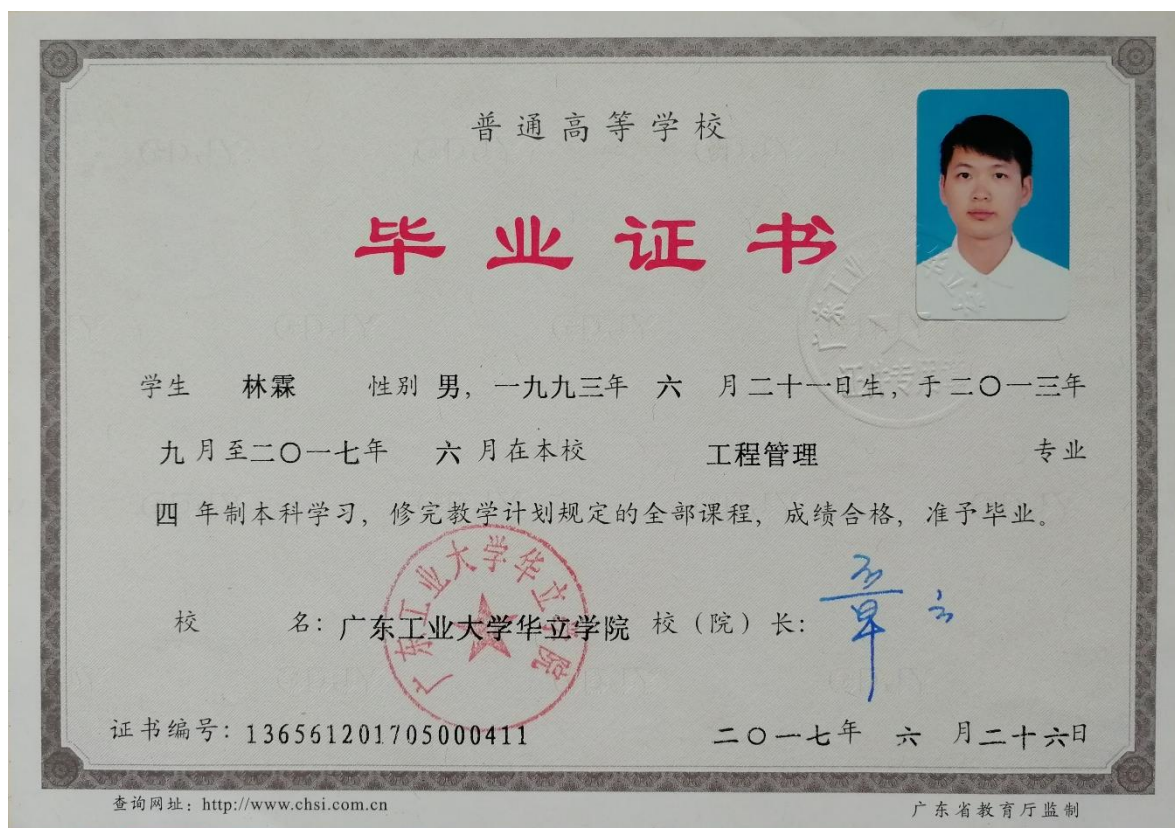 普通高等学校
毕业证书
学生 林霖 性别 男，一九九三年 六 月二十一日生，于二〇一三年
九月至二〇一七年 六 月在本校 工程管理 专业
四 年制本科学习，修完教学计划规定的全部课程，成绩合格，准予毕业。
广东工业大学华立学院
校 名：广东工业大学华立学院 校（院）长：
证书编号：136561201705000411 二〇一七年 六 月二十六日
查询网址：http://www.chsi.com.cn 广东省教育厅监制